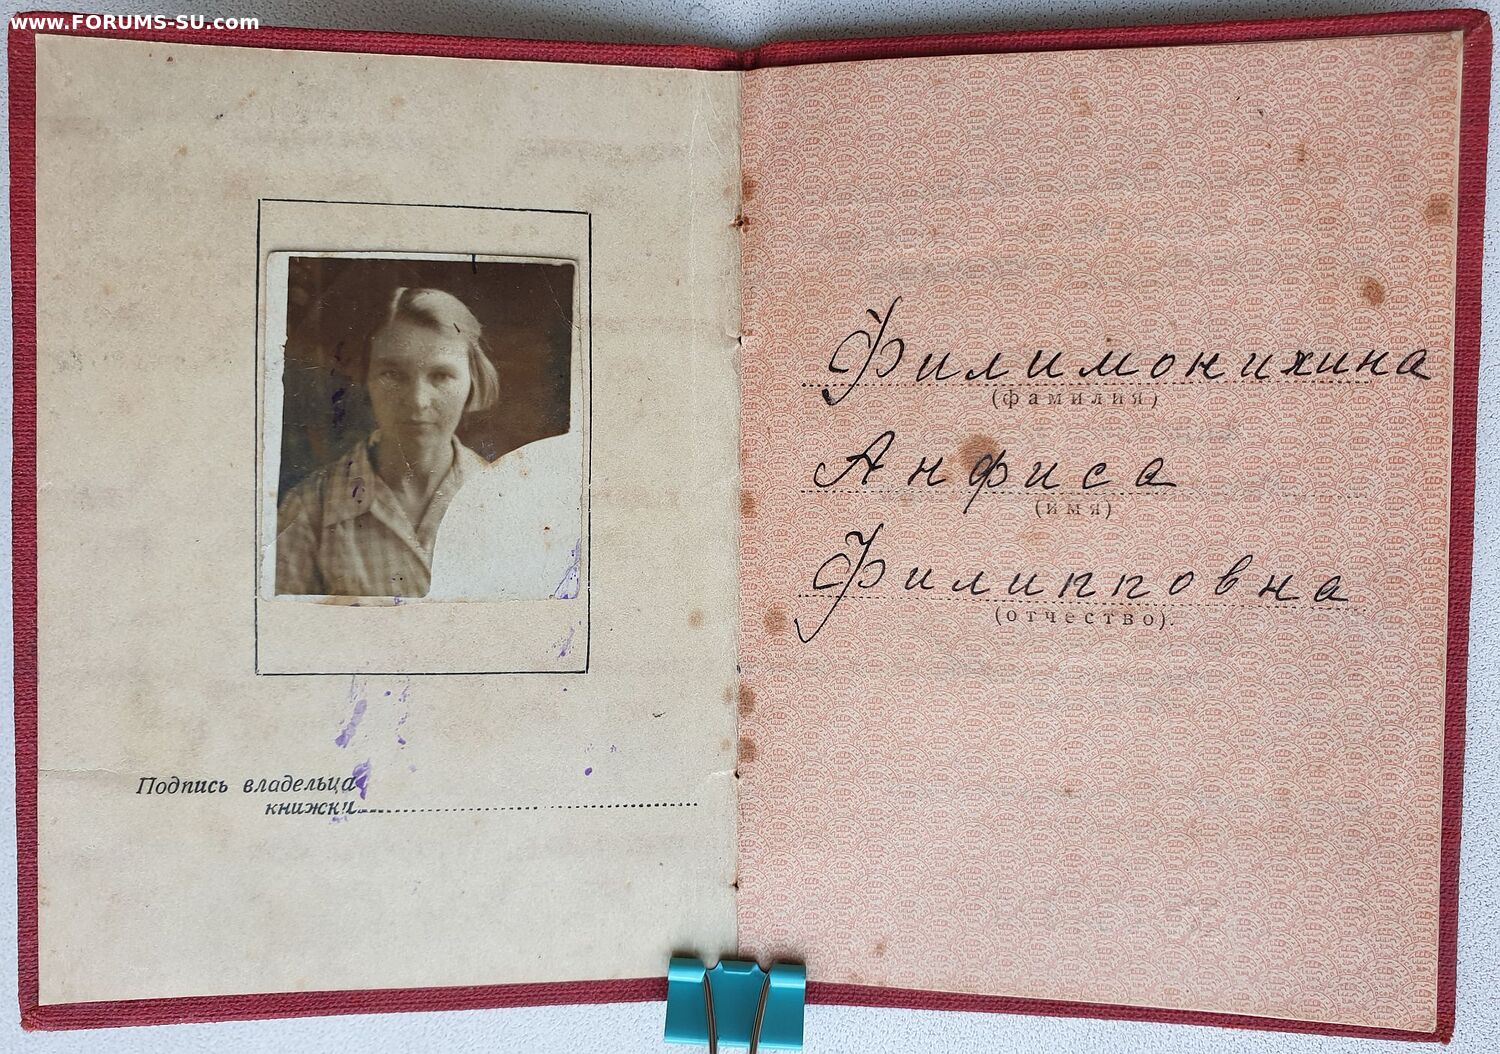 www.FORUMS-SU.com
Подпись владельца
книжки
Филимонихина
(фамилия)
Анфиса
(имя)
Филипповна
(отчество).